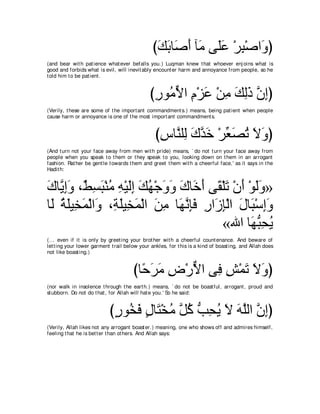 (وَاصْبِرْ عَلَى مَآ أَصَابَكَ)
(and bear with patience whatever befalls you.) Luqman knew that whoever enjoins what is
good and forbids what is evil, will inevitably encounter harm and annoyance from people, so he
told him to be patient.
(إِنَّ ذَلِكَ مِنْ عَزْمِ الاٌّمُورِ)
(Verily, these are some of the important commandments.) means, being patient when people
cause harm or annoyance is one of the most important commandments.
(وَلاَ تُصَعِّرْ خَدَّكَ لِلنَّاسِ)
(And turn not your face away from men with pride) means, `do not turn your face away from
people when you speak to them or they speak to you, looking down on them in an arrogant
fashion. Rather be gentle towards them and greet them with a cheerful face,' as it says in the
Hadith:
«وَلَوْ أَنْ تَلْقَى أَخَاكَ وَوَجْهُكَ إِلَيْهِ مُنْبَسِطٌ، وَإِيَّاكَ
وَإِسْبَالَ الْإِزَارِ فَإِنَّهَا مِنَ الْمَخِيلَةِ، وَالْمَخِيلَةُ لَا
يُحِبُّهَا الله»
(. . even if it is only by greeting your brother with a cheerful countenance. And beware of
letting your lower garment trail below your ankles, for this is a kind of boasting, and Allah does
not like boasting.)
(وَلاَ تَمْشِ فِى الاٌّرْضِ مَرَحًا)
(nor walk in insolence through the earth.) means, `do not be boastful, arrogant, proud and
stubborn. Do not do that, for Allah will hate you.' So he said:
(إِنَّ اللَّهَ لاَ يُحِبُّ كُلَّ مُخْتَالٍ فَخُورٍ)
(Verily, Allah likes not any arrogant boaster.) meaning, one who shows off and admires himself,
feeling that he is better than others. And Allah says: